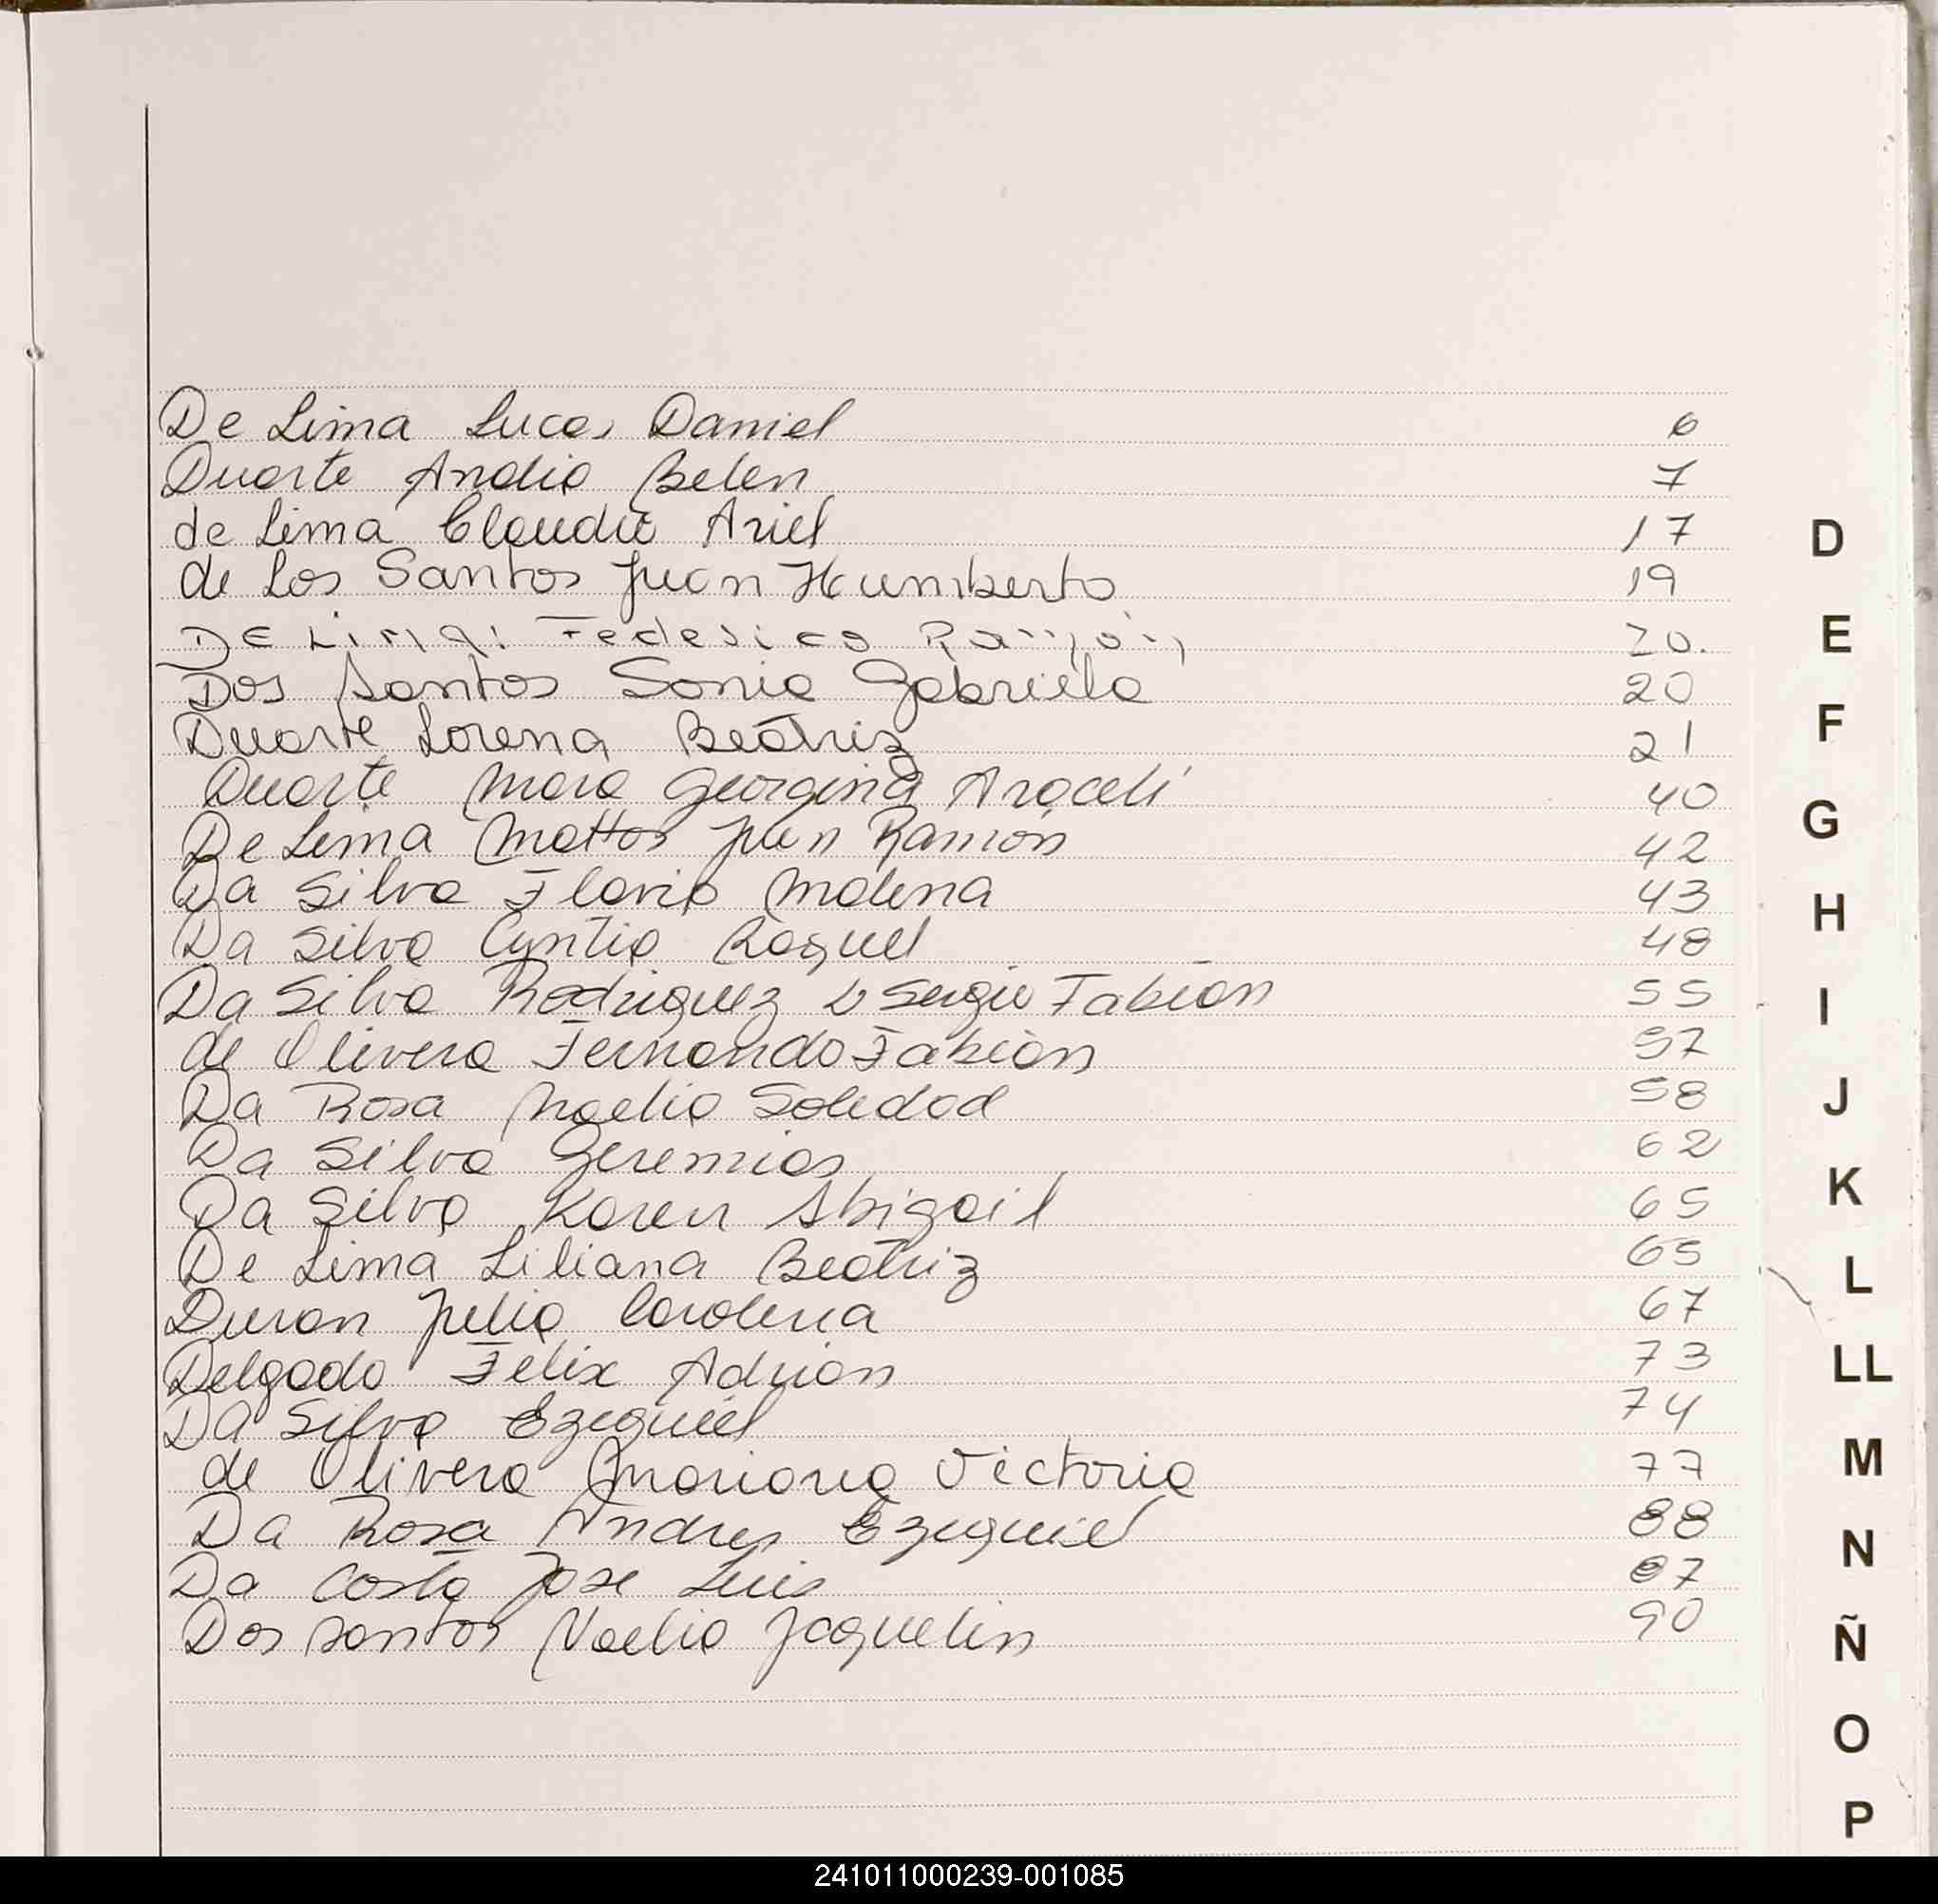 De Lima Lucas Daniel 6
Duarte Analia Belen 7
de Lima Claudio Ariel 17
de Los Santos Juan Humberto 19
DE Lima: Federico Ramón 20.
Dos Santos Sonia Gabriela 20
Duarte Lorena Beatriz 21
Duarte Mara Georgina Araceli 40
De Lima Mattos Juan Ramón 42
Da Silva Flavia Malena 43
Da Silva Cyntia Raquel 48
Da Silva Rodriguez Sergio Fabián 55
de Olivera Fernando Fabian 57
Da Rosa Noelia Soledad 58
Da Silva Geremias 62
Da Silva Karen Abigail 65
De Lima Liliana Beatriz 65
Duran Julia Carolina 67
Delgado Felix Adrian 73
Da Silva Ezequiel 74
de Olivera Mariana Victoria 77
Da Rosa Andres Ezequiel 88
Da Costa Jose Luis 87
Dos Santos Noelia Jaquelin 90
D
E
F
G
H
I
J
K
L
LL
M
N
Ñ
O
P
241011000239-001085